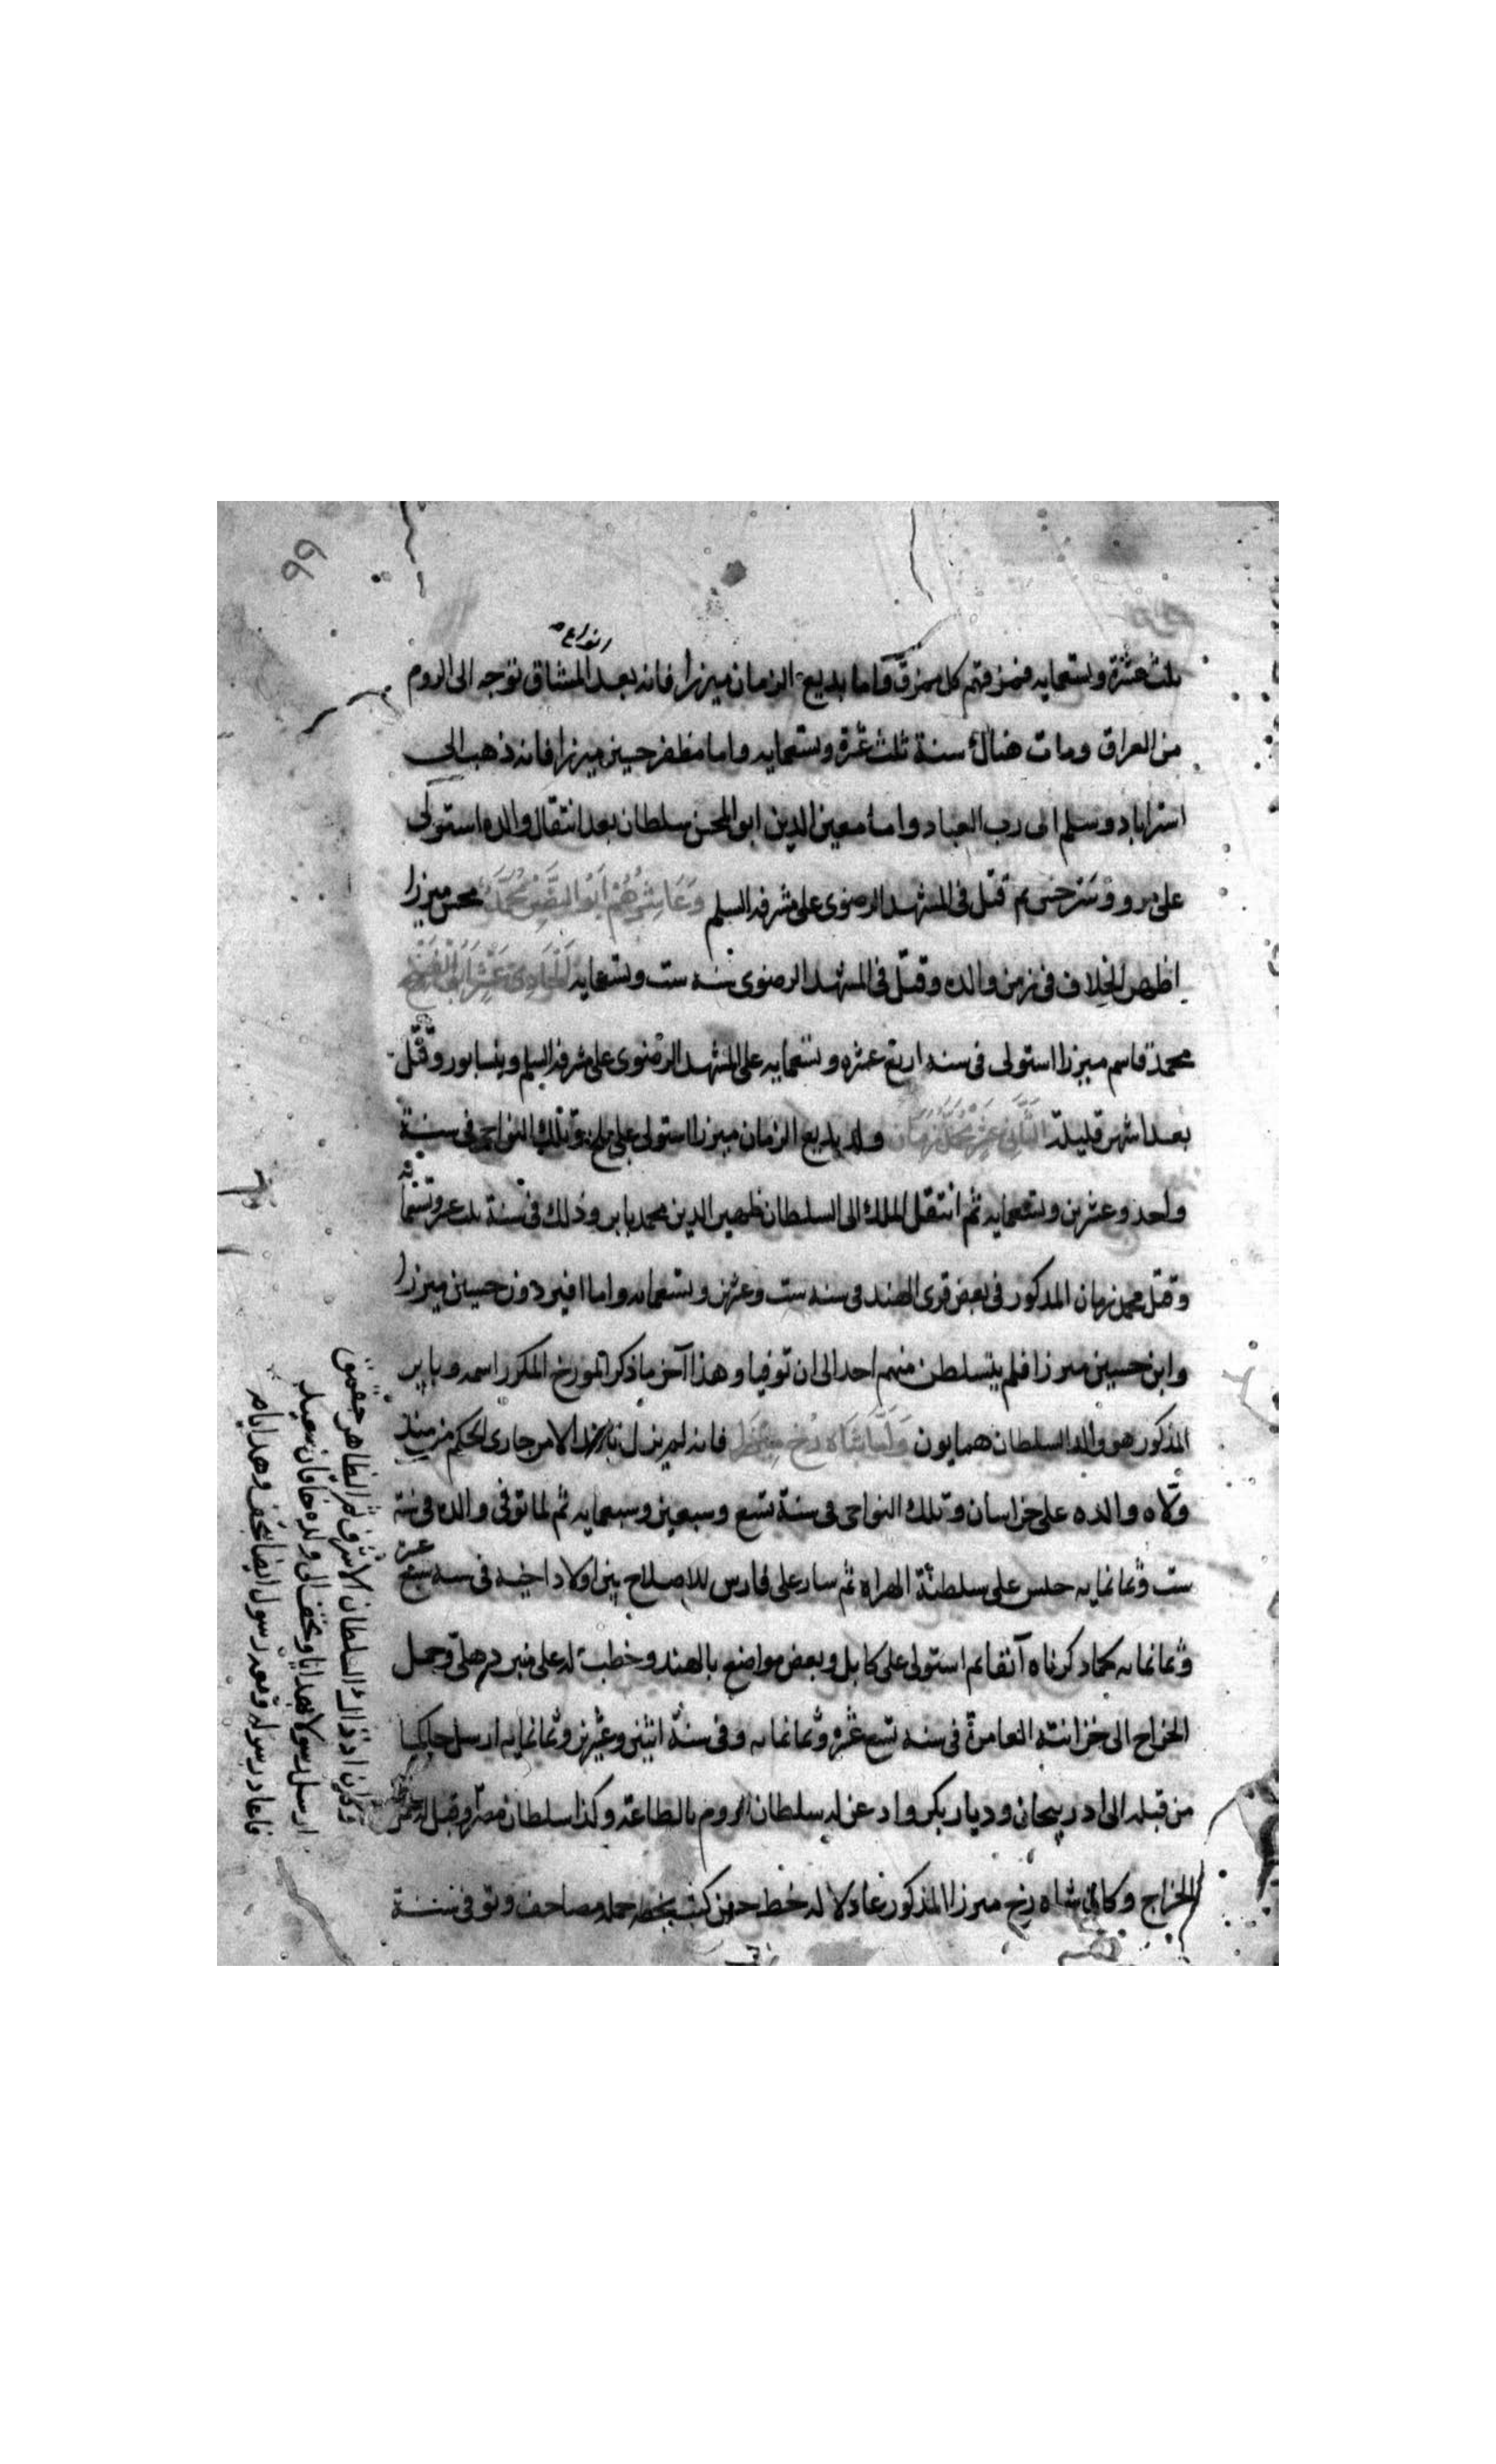 ٩٩
انواع
ثلث عشرة وتسعمايه فمزقتهم كل ممزق واما بديع الزمان ميرزا فانه بعد المشاق توجه الى الروم
من العراق ومات هنالك سنة ثلث عشرة وتسعمايه واما مظفر حسين ميرزا فانه ذهب الى
استراباد وسلم الى رب العباد واما معين الدين ابو المحسن سلطان بعد انتقال والده استولى
على مرو وسرخس ثم قتل فى المشهد الرضوى على مشرفه السلم وعاشرهم ابو محمد محسن ميرزا
اظهر الخلاف فى زمن والده وقتل فى المشهد الرضوى سنه ست وتسعمايه الحادى عشر ابو
محمد قاسم ميرزا استولى فى سنه اربع عشره وتسعمايه على المشهد الرضوى على مشرفه السلم ونيسابور وقتل
بعد اشهر قليلة الثانى عشر محمد زمان ولد بديع الزمان ميرزا استولى على بلخ وتلك النواحى فى سنة
واحد وعشرين وتسعمايه ثم انتقل الملك الى السلطان ظهير الدين محمد بابر وذلك فى سنة ثلث عشر وتسعمايه
وقتل محمد زمان المذكور فى بعض قرى الهند فى سنه ست وعشرين وتسعمايه واما افيردون حسين ميرزا
وابن حسين ميرزا فلم يتسلطن منهم احد الى ان توفيا وهذا آخر ما ذكر المورخ المكرر اسمه وبابر
المذكور هو والد السلطان همايون واما شاه رخ ميرزا فانه لم يزل نافذ الامر جارى الحكم من منذ
ولاه والده على خراسان وتلك النواحى فى سنة تسع وسبعين وسبعمايه ثم لما توفى والده فى سنة
ست وثمانمايه جلس على سلطنة الهراه ثم سار على فارس للاصلاح بين اولاد اخيه فى سنه سبع عشر
وثمانمايه كما ذكرناه آنفا ثم استولى على كابل وبعض مواضع بالهند وخطب له على منبر دهلى وحمل
الخراج الى خزانته العامرة فى سنه تسع عشره وثمانمايه وفى سنة اثنين وعشرين وثمانمايه ارسل حاكما
من قبله الى ادربيجان وديار بكر واذعن له سلطان الروم بالطاعة وكذا سلطان مصر وقبل
الخراج وكان شاه رخ ميرزا المذكور عادلا له خط حسن كتب بخطه جمله مصاحف وتوفى سنة
وكان اذ ذاك السلطان الاشرف ثم الظاهر جقمق
ارسل رسولا بهدايا وتحف الى ولده خاقان سعيد
فاعاد رسوله وبعد رسول ايضا بتحف وهدايا